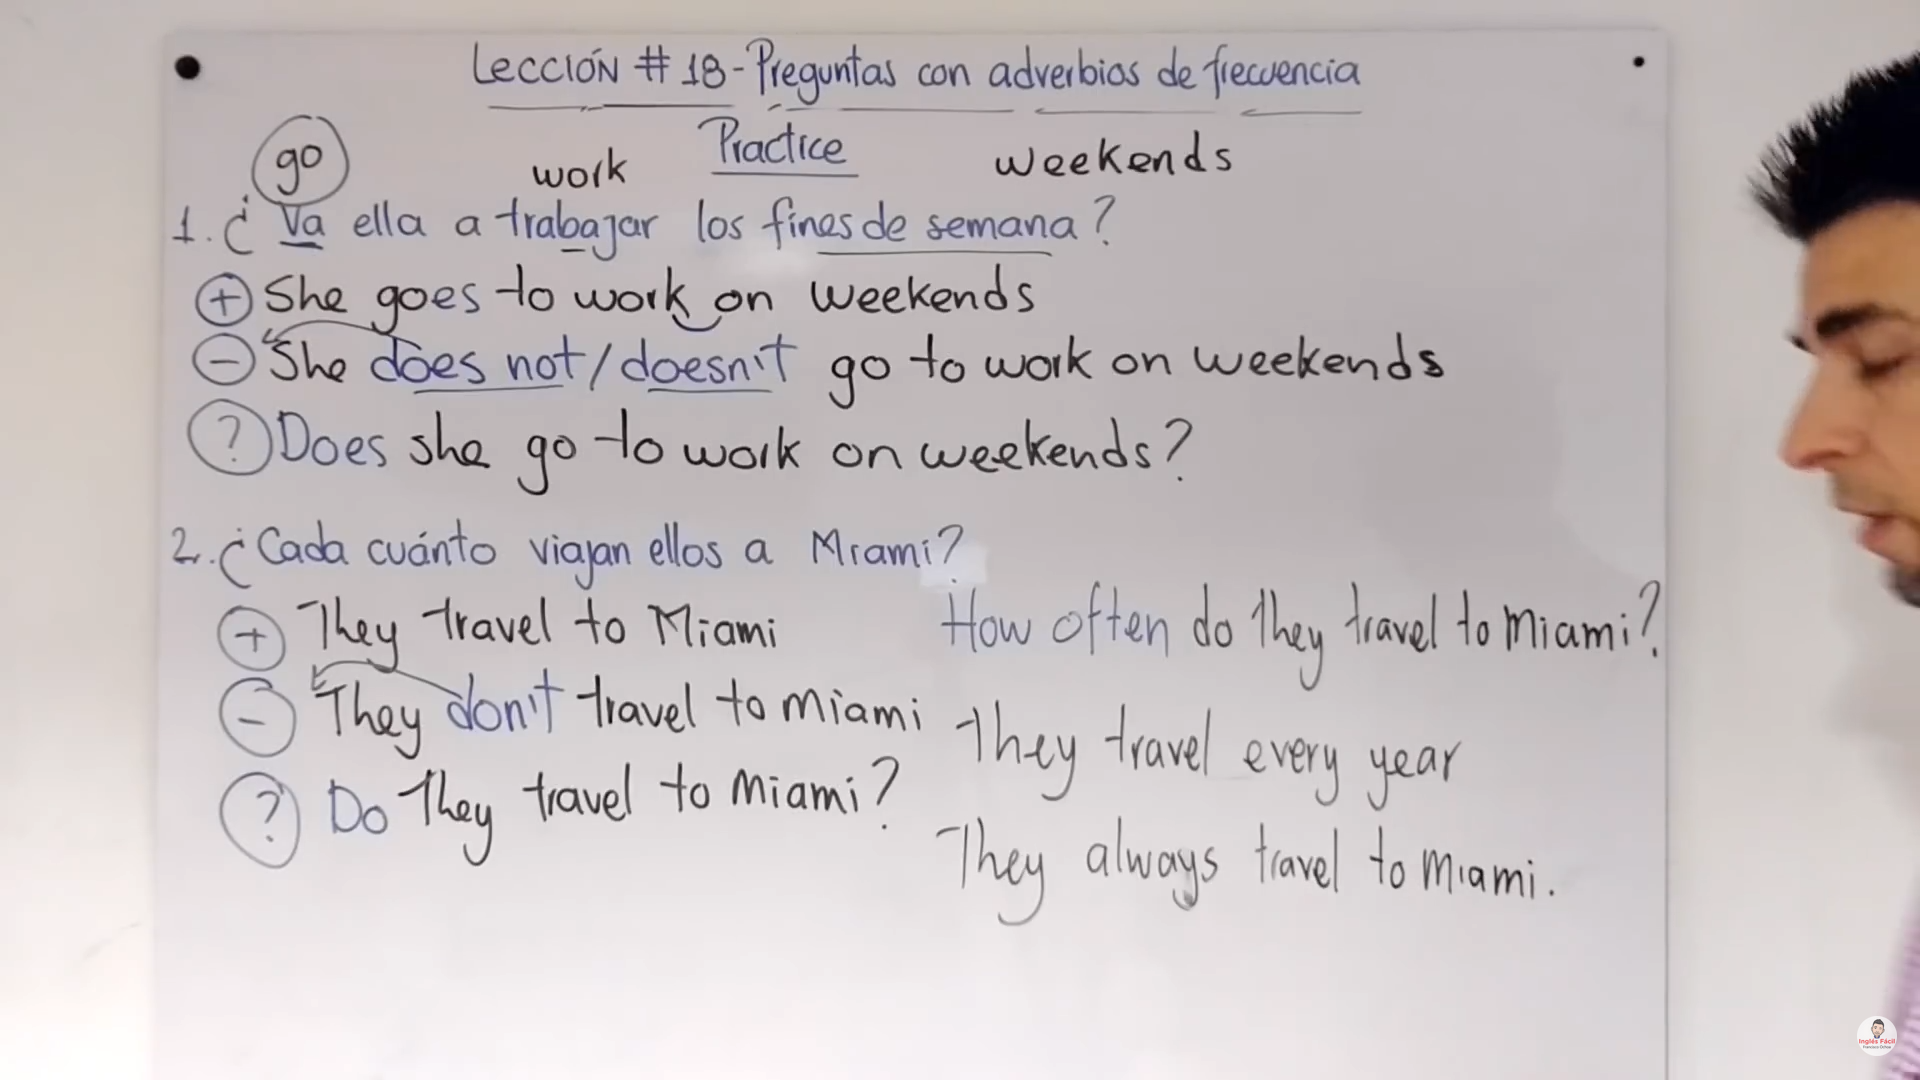 Lección # 18 - Preguntas con adverbios de frecuencia
Practice
go work weekends
1. ¿Va ella a trabajar los fines de semana?
+ She goes to work on weekends
- She does not / doesn't go to work on weekends
? Does she go to work on weekends?
2. ¿Cada cuánto viajan ellos a Miami?
+ They travel to Miami
- They don't travel to Miami
? Do They travel to Miami?
How often do They travel to Miami?
They travel every year
They always travel to Miami.
Inglés Fácil